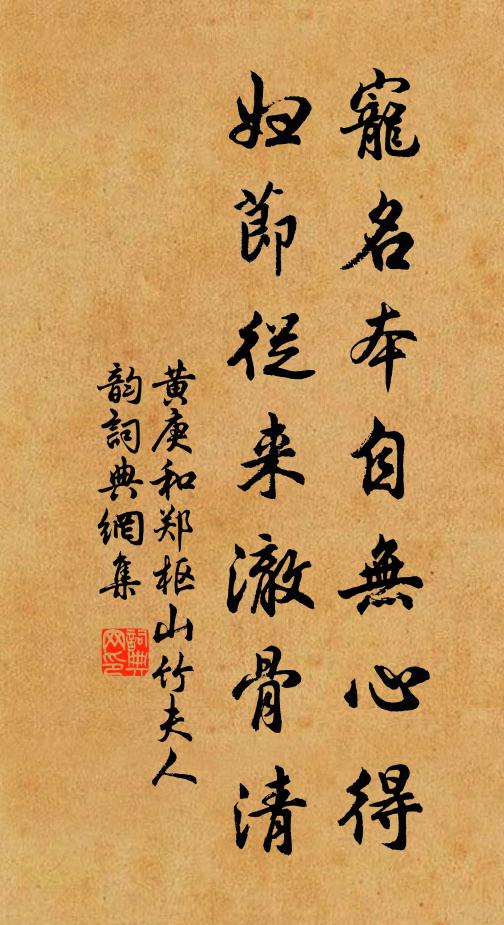 寵名本自無心得
妇節從来澈骨清
黄庚和郑枢山竹夫人
韵詞典網集
詞典網印